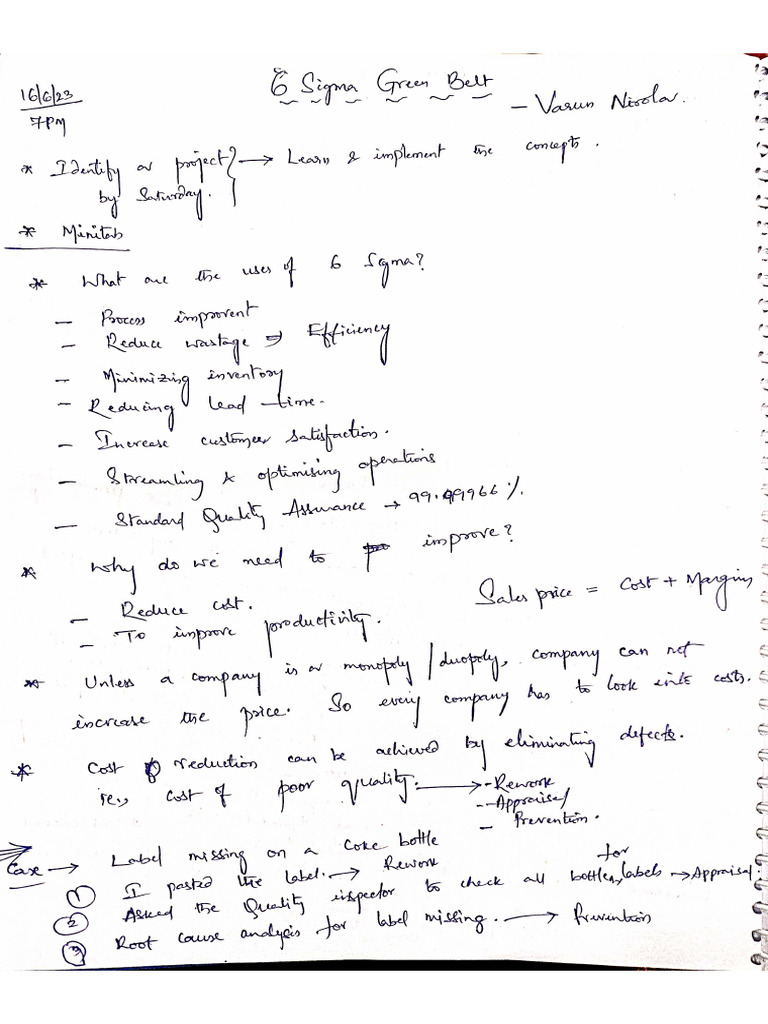 6 Sigma Green Belt
16/6/23
7PM
- Varun
* Identify a project → Learn & implement the concepts.
by Saturday.
* Minitab
* What are the uses of 6 Sigma?
- Process improvent
- Reduce wastage → Efficiency
- Minimizing inventory
- Reducing lead time.
- Increase customer satisfaction.
- Streamling & optimising operations
- Standard Quality Assurance → 99.99966%.
* Why do we need to improve?
- Reduce cost.
Sales price = Cost + Margins
- To improve productivity.
* Unless a company is a monopoly/duopoly, company can not
increase the price. So every company has to look into costs.
* Cost reduction can be achieved by eliminating defects.
ie., cost of poor quality. → - Rework
- Appraisal
- Prevention.
Case → Label missing on a coke bottle
① I pasted the label. → Rework
② Asked the Quality inspector to check all bottles for labels → Appraisal.
③ Root cause analysis for label missing. → Prevention